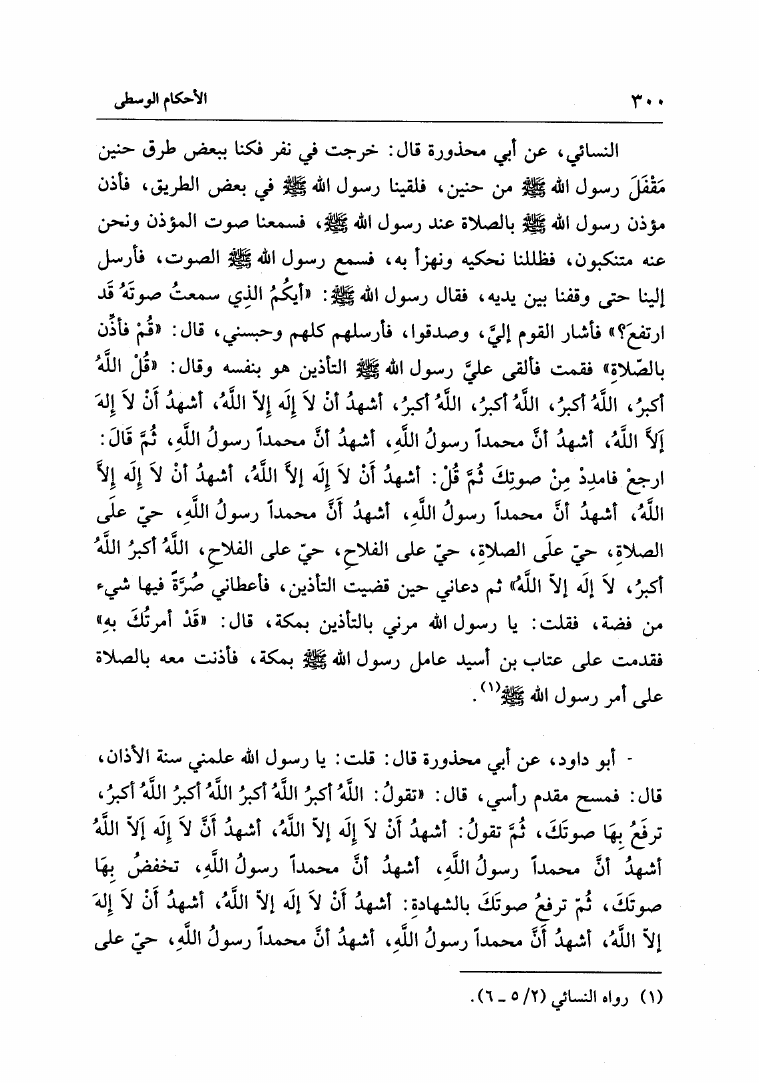 ٣٠٠ الأحكام الوسطى
النسائي، عن أبي محذورة قال: خرجت في نفر فكنا ببعض طرق حنين
مَقْفَلَ رسول الله ﷺ من حنين، فلقينا رسول الله ﷺ في بعض الطريق، فأذن
مؤذن رسول الله ﷺ بالصلاة عند رسول الله ﷺ، فسمعنا صوت المؤذن ونحن
عنه متنكبون، فظللنا نحكيه ونهزأ به، فسمع رسول الله ﷺ الصوت، فأرسل
إلينا حتى وقفنا بين يديه، فقال رسول الله ﷺ: «أيكُمُ الذي سمعتُ صوتَهُ قَد
ارتفعَ؟» فأشار القوم إليَّ، وصدقوا، فأرسلهم كلهم وحبسني، قال: «قُمْ فأذِّن
بالصّلاةِ» فقمت فألقى عليَّ رسول الله ﷺ التأذين هو بنفسه وقال: «قُلْ اللَّهُ
أكبرُ، اللَّهُ أكبرُ، اللَّهُ أكبرُ، اللَّهُ أكبرُ، أشهدُ أنْ لاَ إِلَه إلاّ اللَّهُ، أشهدُ أَنْ لاَ إلهَ
إَلاَّ اللَّهُ، أشهدُ أنَّ محمداً رسولُ اللَّهِ، أشهدُ أنَّ محمداً رسولُ اللَّهِ، ثُمَّ قَالَ:
ارجعْ فامدِدْ مِنْ صوتِكَ ثُمَّ قُلْ: أشهدُ أَنْ لاَ إِلَه إلاَّ اللَّهُ، أشهدُ أنْ لاَ إِلَه إلاَّ
اللَّهُ، أشهدُ أنَّ محمداً رسولُ اللَّهِ، أشهدُ أَنَّ محمداً رسولُ اللَّهِ، حيّ علَى
الصلاةِ، حيّ علَى الصلاةِ، حيّ على الفلاحِ، حيّ على الفلاحِ، اللَّهُ أكبرُ اللَّهُ
أكبرُ، لاَ إلَه إلاّ اللَّهُ» ثم دعاني حين قضيت التأذين، فأعطاني صُرَّةً فيها شيء
من فضة، فقلت: يا رسول الله مرني بالتأذين بمكة، قال: «قَدْ أمرتُكَ بِهِ»
فقدمت على عتاب بن أسيد عامل رسول الله ﷺ بمكة، فأذنت معه بالصلاة
على أمر رسول الله ﷺ(١).
- أبو داود، عن أبي محذورة قال: قلت: يا رسول الله علمني سنة الأذان،
قال: فمسح مقدم رأسي، قال: «تقولُ: اللَّهُ أكبرُ اللَّهُ أكبرُ اللَّهُ أكبرُ اللَّهُ أكبرُ،
ترفَعُ بِهَا صوتَكَ، ثُمَّ تقولُ: أشهدُ أَنْ لاَ إلَه إلاّ اللَّهُ، أشهدُ أَنَّ لاَ إِلَه إَلاّ اللَّهُ
أشهدُ أنَّ محمداً رسولُ اللَّهِ، أشهدُ أنَّ محمداً رسولُ اللَّهِ، تخفضُ بِهَا
صوتَكَ، ثُمّ ترفعُ صوتَكَ بالشهادةِ: أشهدُ أَنْ لاَ إلَه إلاّ اللَّهُ، أشهدُ أَنْ لاَ إِلهَ
إلاّ اللَّهُ، أشهدُ أَنَّ محمداً رسولُ اللَّهِ، أشهدُ أنَّ محمداً رسولُ اللَّهِ، حيّ على
(١) رواه النسائي (٢/ ٥ - ٦).